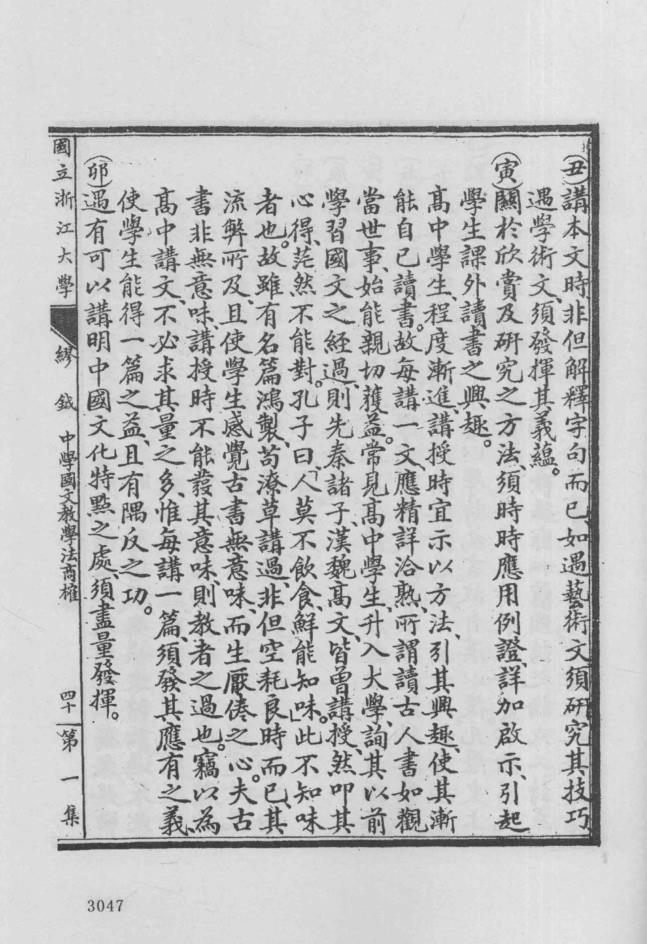 (丑)講本文時非但解釋字句而已、如遇藝術文須研究其技巧
遇學術文、須發揮其義蘊。
(寅)關於欣賞及研究之方法、須時時應用例證、詳加啟示、引起
學生課外讀書之興趣。
高中學生、程度漸進、講授時宜示以方法、引其興趣、使其漸
能自已讀書。故每講一文應精詳洽熟、所謂讀古人書如觀
當世事、始能親切獲益。常見高中學生、升入大學、詢其以前
學習國文之經過、則先秦諸子、漢魏高文、皆曾講授、然叩其
心得、茫然不能對。孔子曰、「人莫不飲食、鮮能知味。」此不知味
者也。故雖有名篇鴻製、苟潦草講過、非但空耗良時而已、其
流弊所及、且使學生感覺古書無意味、而生厭倦之心。夫古
書非無意味、講授時不能發其意味、則教者之過也。竊以為
高中講文、不必求其量之多、惟每講一篇、須發其應有之義、
使學生能得一篇之益、且有隅反之功。
(卯)遇有可以講明中國文化特點之處、須盡量發揮。
國立浙江大學
繆鉞 中學國文教學法商榷
四十
第一集
3047